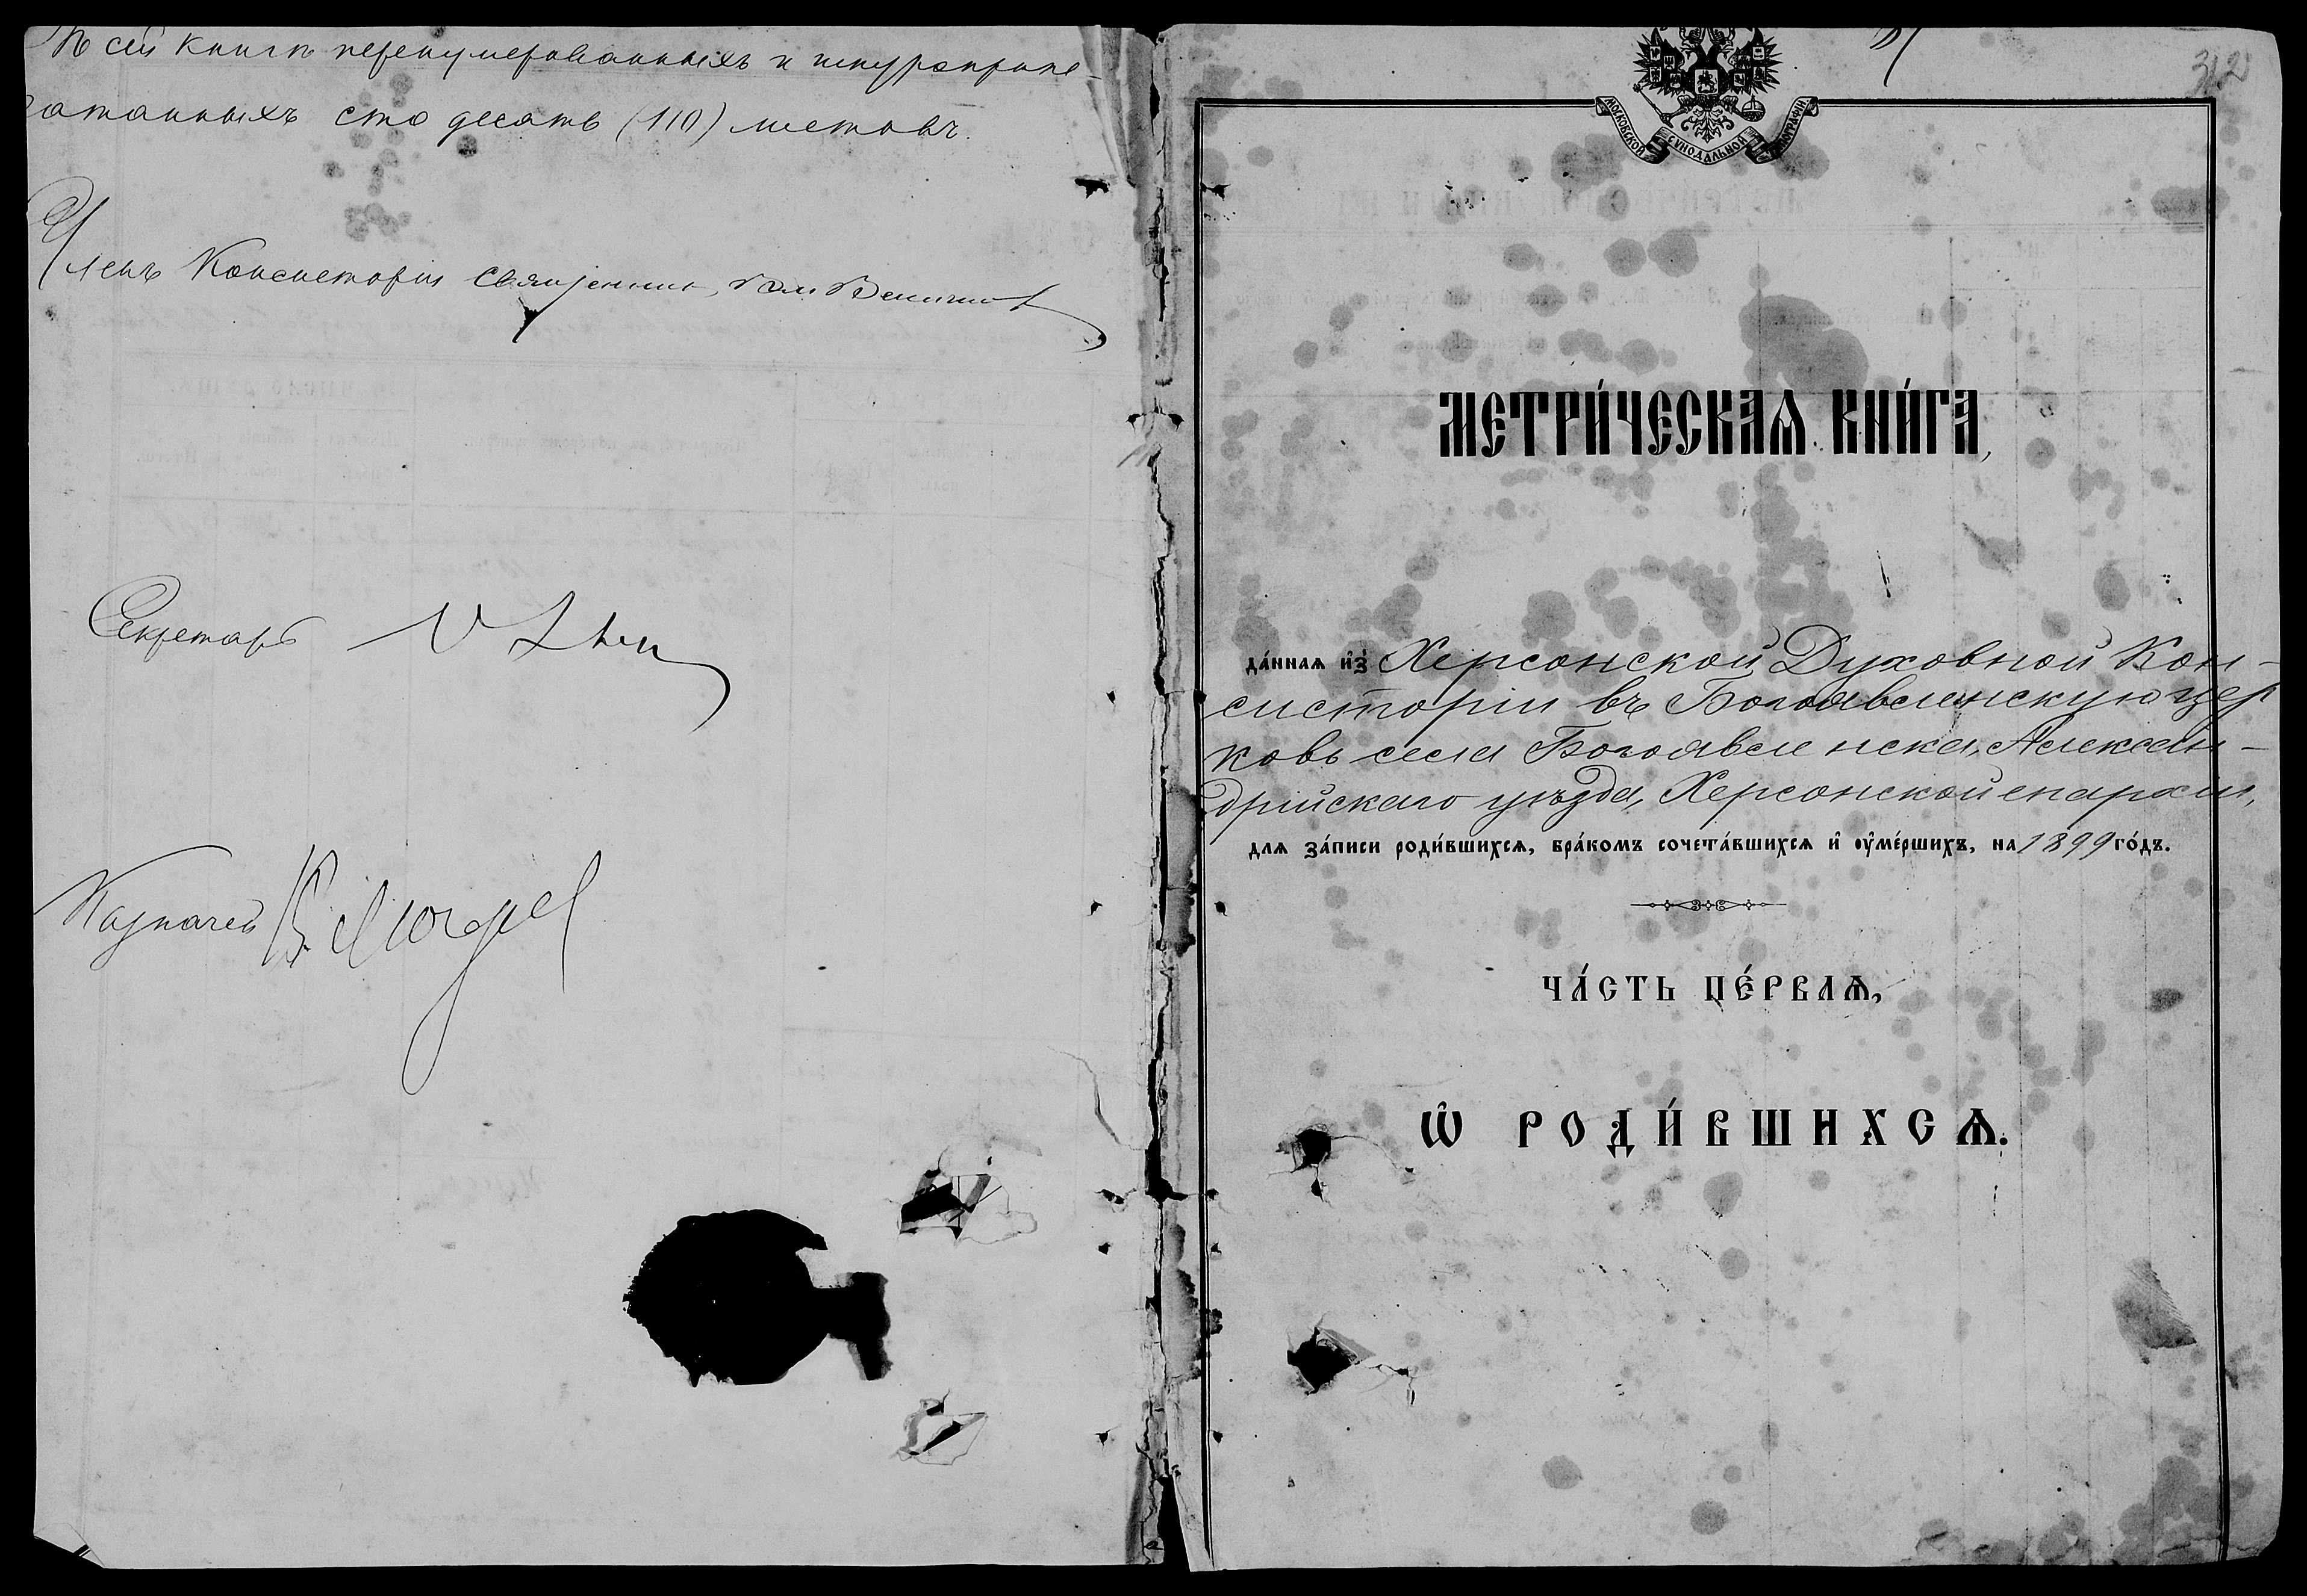 въ сей книгѣ перенумерованныхъ и шнуроприпе-
чатанныхъ сто десять (110) листовъ.
Членъ Консисторіи Священникъ
Секретарь
Казначей
312
МОСКОВСКОЙ СѴНОДАЛЬНОЙ ТИПОГРАФІИ
МЕТРИ́ЧЕСКАѦ КНИ́ГА,
да́ннаѧ и҆з̾ Херсонской Духовной Кон-
систоріи въ Богоявленскую цер
ковь села Богоявленска, Алексан-
дрійскаго уѣзда, Херсонской епархіи,
для за́писи роди́вшихсѧ, бра́комъ сочета́вшихсѧ и҆ ᲂу҆ме́ршихъ, на 1899 го́дъ.
ЧА́СТЬ ПЕ́РВАѦ,
Ѡ҆ РОДИ́ВШИХСѦ.